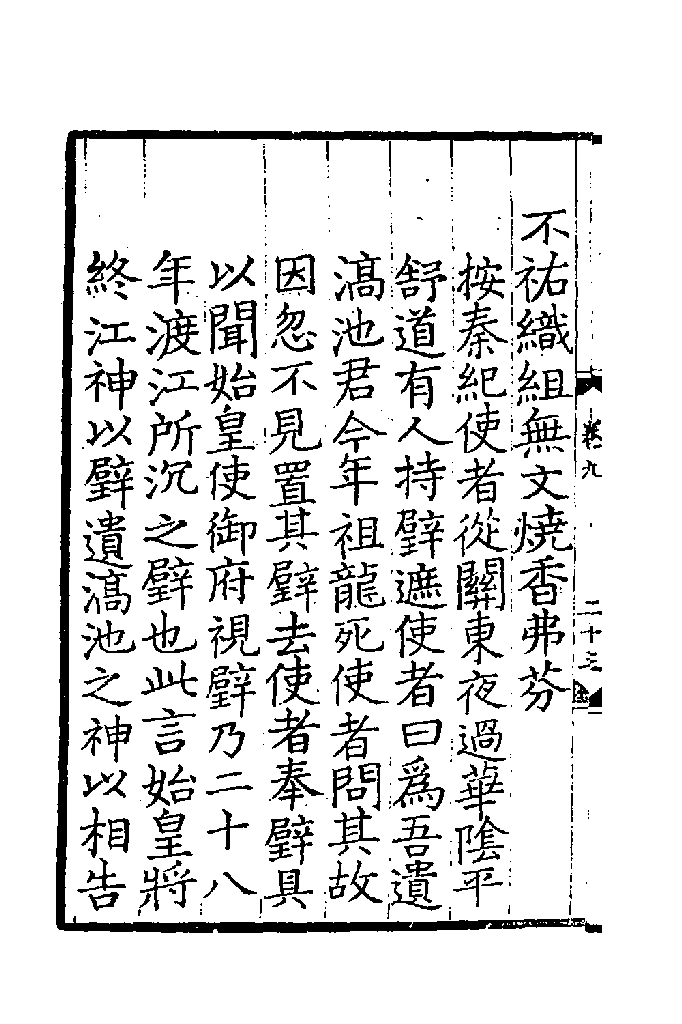 不祐織組無文燒香弗芬
按秦紀使者從關東夜過華陰平
舒道有人持璧遮使者曰爲吾遺
滈池君今年祖龍死使者問其故
因忽不見置其璧去使者奉璧具
以聞始皇使御府視璧乃二十八
年渡江所沉之璧也此言始皇將
終江神以璧遺滈池之神以相告
卷九
二十三